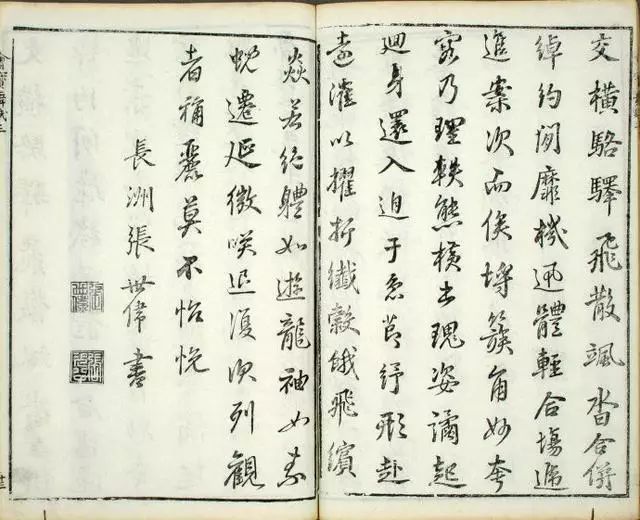 交橫駱驛飛散颯沓合併
綽約閒靡機迅體輕合場遞
進案次而俟埒簇角妙夸
容乃理軼態橫出瑰姿譎起
迴身還入迫于急節紆形赴
遠漼以摧折纖縠蛾飛繽
焱若絕體如遊龍袖如素
蜺遷延微咲退復次列觀
者稱麗莫不怡悅
長洲張世偉書